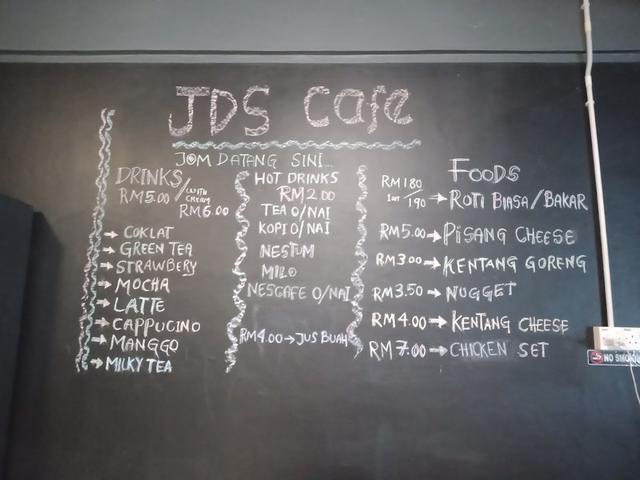 JDS Cafe
JOM DATANG SINI...
DRINKS
RM5.00 / WITH CREAM
RM6.00
→ COKLAT
→ GREEN TEA
→ STRAWBERY
→ MOCHA
→ LATTE
→ CAPPUCINO
→ MANGGO
→ MILKY TEA
HOT DRINKS
RM2.00
TEA O/NAI
KOPI O/NAI
NESTUM
MILO
NESCAFE O/NAI
RM4.00 → JUS BUAH
FOODS
RM1.80 / 1.90 → ROTI BIASA/BAKAR
RM5.00 → PISANG CHEESE
RM3.00 → KENTANG GORENG
RM3.50 → NUGGET
RM4.00 → KENTANG CHEESE
RM7.00 → CHICKEN SET
NO SMOKING